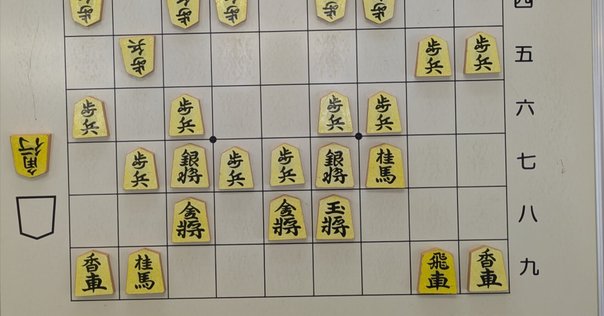 歩 歩 歩 歩 歩 四
歩兵 歩兵 歩兵 五
歩兵 歩兵 歩兵 歩兵 六
角行 歩兵 銀将 歩兵 歩兵 銀将 桂馬 七
金将 金将 玉将 八
香車 桂馬 飛車 香車 九